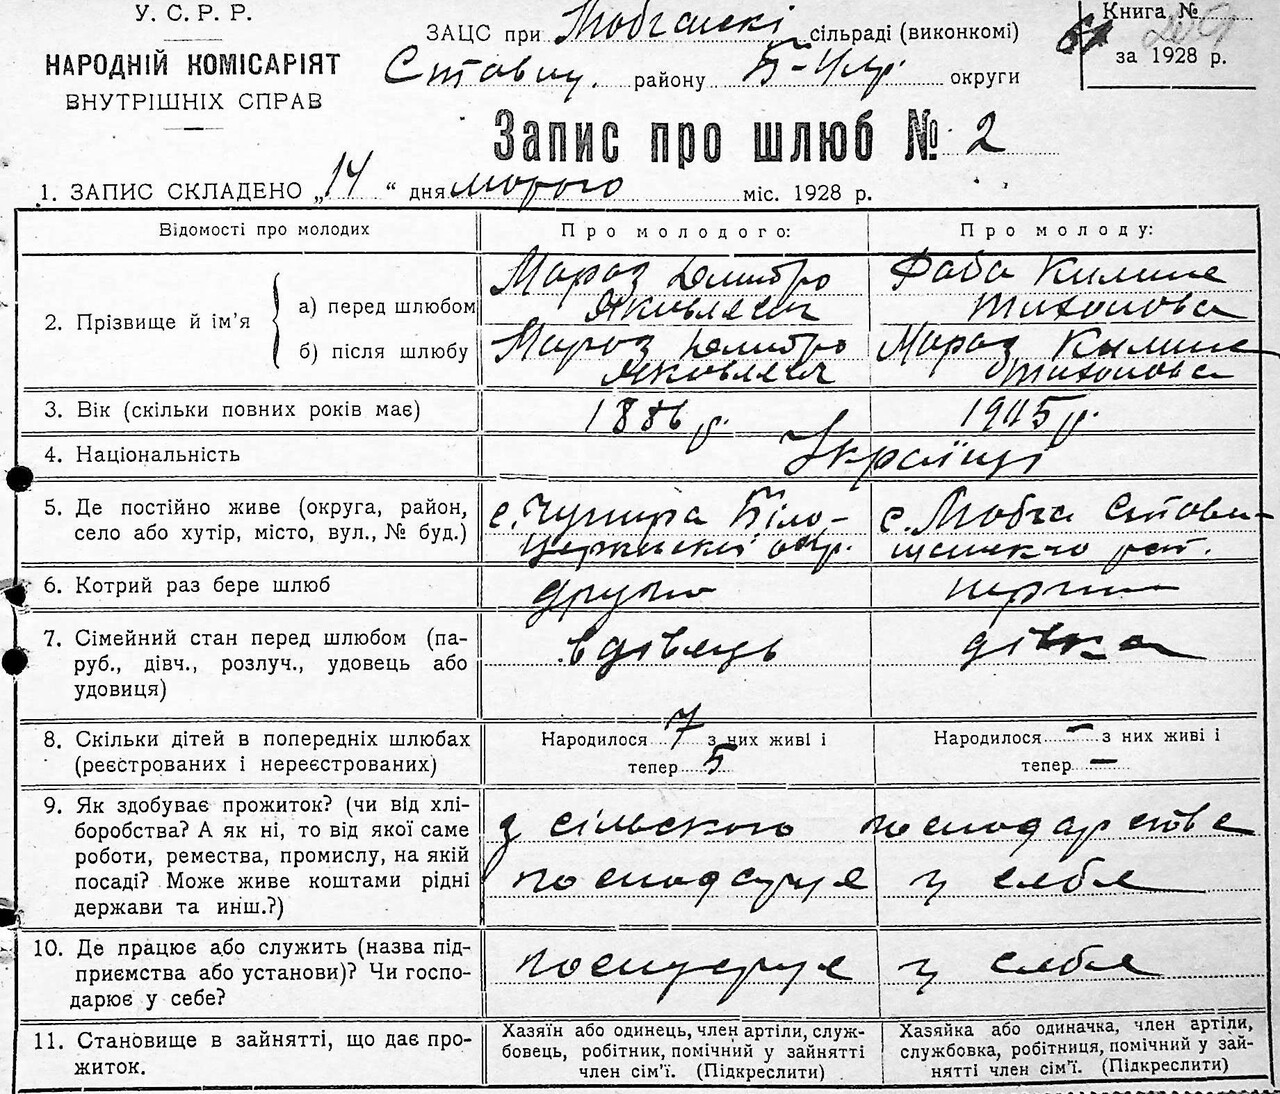 У. С. Р. Р.
НАРОДНІЙ КОМІСАРІЯТ
ВНУТРІШНІХ СПРАВ
ЗАЦС при сільраді (виконкомі)
Ставищ. району Б-Цер. округи
Книга №
за 1928 р.
Запис про шлюб № 2
1. ЗАПИС СКЛАДЕНО „14“ дня міс. 1928 р.
Відомості про молодих
Про молодого:
Про молоду:
2. Прізвище й ім’я
а) перед шлюбом
Мороз Дмитро
Яковлевич
Баба Килина
Тихонова
б) після шлюбу
Мороз Дмитро
Яковлевич
Мороз Килина
Тихонова
3. Вік (скільки повних років має)
1886 р.
1905 р.
4. Національність
Українці
5. Де постійно живе (округа, район,
село або хутір, місто, вул., № буд.)
с. Чупира Біло-
церківської окр.
с. Стави-
щанського рай.
6. Котрий раз бере шлюб
другий
перший
7. Сімейний стан перед шлюбом (па-
руб., дівч., розлуч., удовець або
удовиця)
вдівець
дівка
8. Скільки дітей в попередніх шлюбах
(реєстрованих і нереєстрованих)
Народилося 7 з них живі і
тепер 5
Народилося – з них живі і
тепер –
9. Як здобуває прожиток? (чи від хлі-
боробства? А як ні, то від якої саме
роботи, ремества, промислу, на якій
посаді? Може живе коштами рідні
держави та инш.?)
з сільского господарства
господарує у себе
10. Де працює або служить (назва під-
приємства або установи)? Чи госпо-
дарює у себе?
господарує у себе
11. Становище в зайнятті, що дає про-
житок.
Хазяїн або одинець, член артіли, служ-
бовець, робітник, помічний у зайнятті
член сім’ї. (Підкреслити)
Хазяйка або одиначка, член артіли,
службовка, робітниця, помічний у зай-
нятті член сім’ї. (Підкреслити)